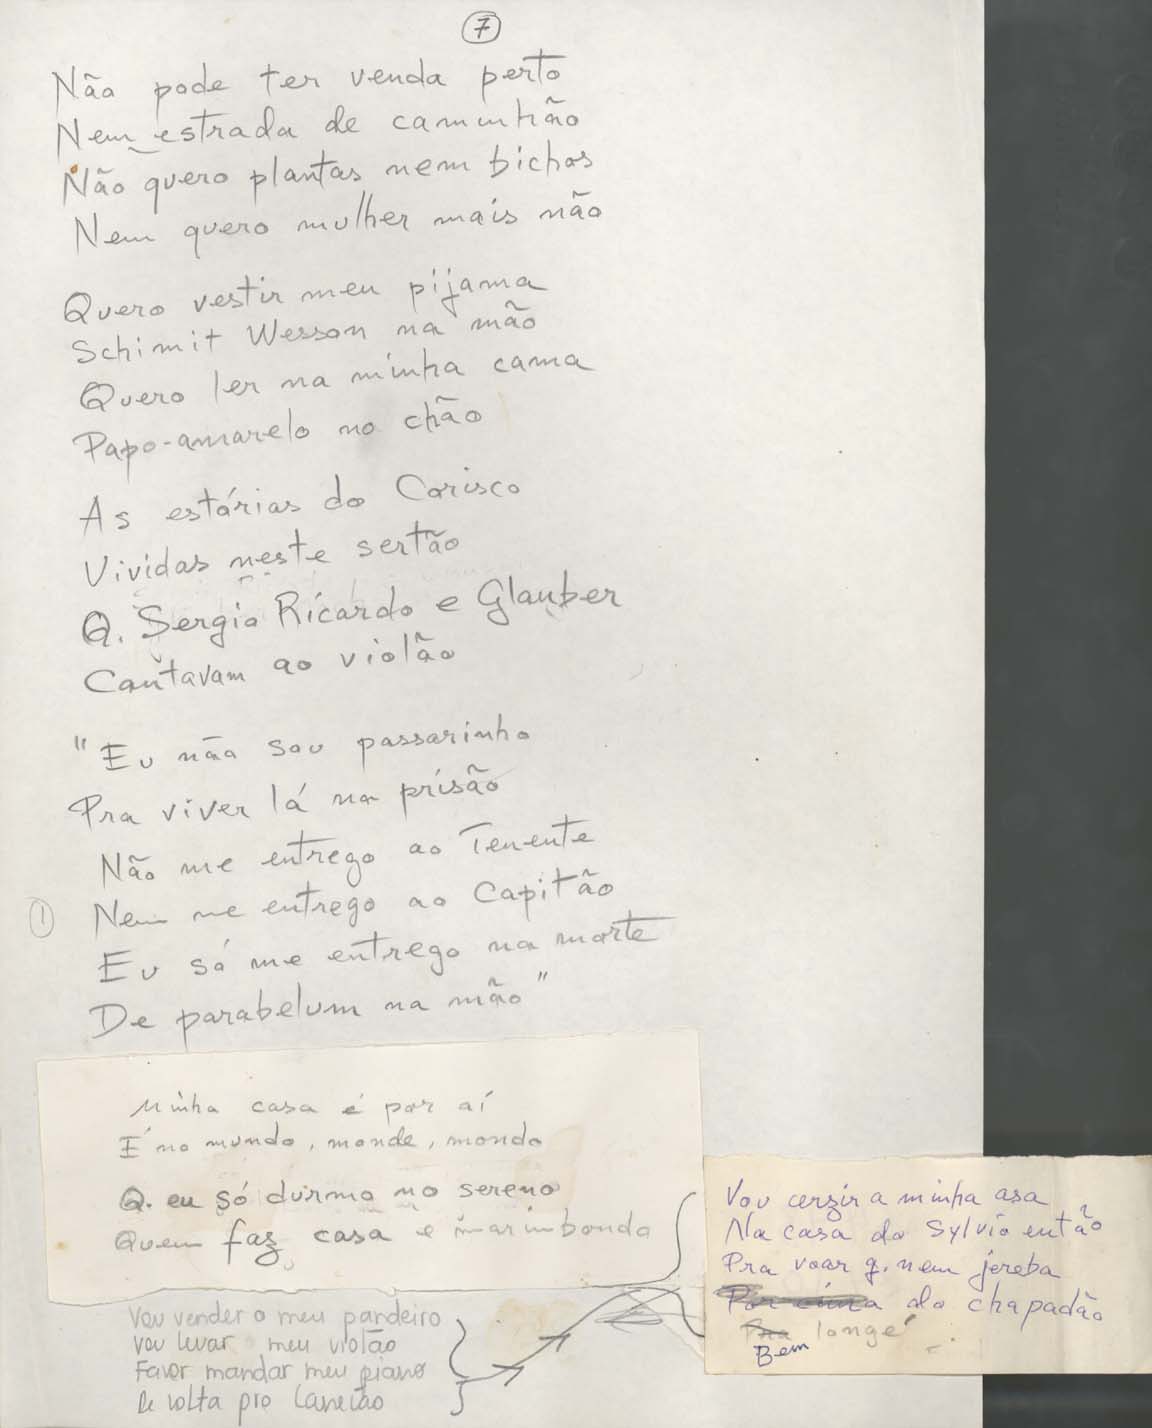 7
Não pode ter venda perto
Nem estrada de caminhão
Não quero plantas nem bichos
Nem quero mulher mais não
Quero vestir meu pijama
Schimit Wesson na mão
Quero ler na minha cama
Papo-amarelo no chão
As estórias do Corisco
Vividas neste sertão
Q. Sergio Ricardo e Glauber
Cantavam ao violão
"Eu não sou passarinho
Pra viver lá na prisão
Não me entrego ao Tenente
1 Nem me entrego ao Capitão
Eu só me entrego na morte
De parabelum na mão"
Minha casa é por aí
É no mundo, monde, mondo
Q. eu só durmo no sereno
Quem faz casa é marimbondo
Vou vender o meu pandeiro
Vou levar meu violão
Favor mandar meu piano
De volta pro Canecão
Vou cerzir a minha asa
Na casa do Sylvio então
Pra voar q. nem jereba
Por cima do chapadão
Pra longe
Bem